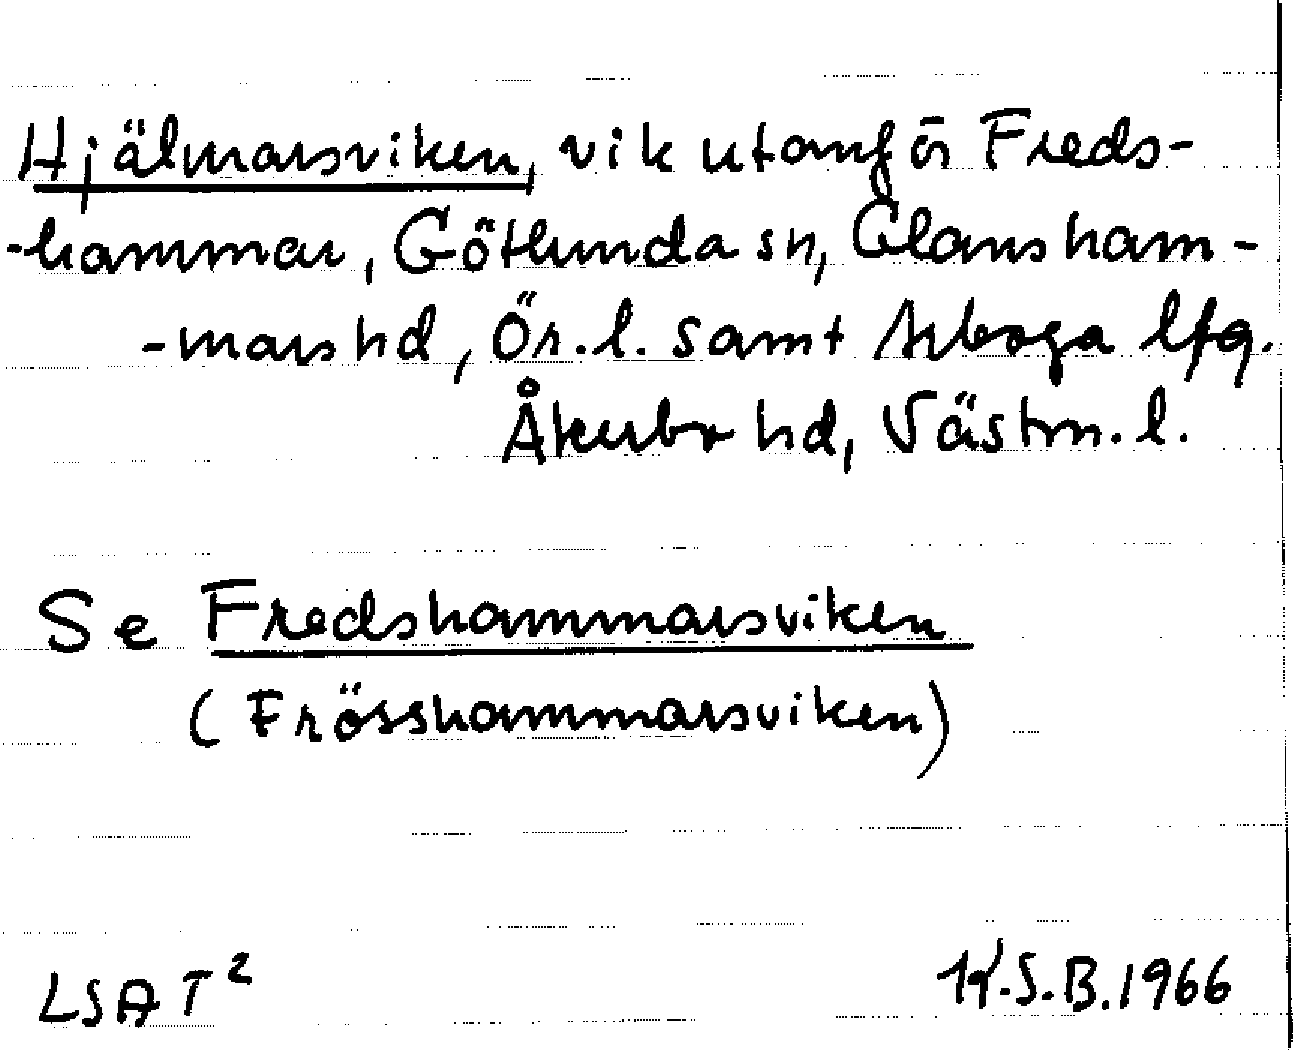 Hjälmarsviken, vik utanför Freds-
-hammar, Götlunda sn, Glansham-
-mars hd, Ör.l. samt Arboga lfg.
Åkerbo hd, Västm.l.
Se Fredshammarsviken
(Frösshammarsviken)
LSA T²
K.S.B. 1966